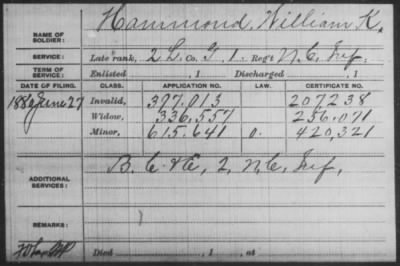 Hammond, William K.
NAME OF
SOLDIER:
SERVICE: Late rank, 2 L, Co. G, 1 Reg't N.C. Inf.
TERM OF
SERVICE: Enlisted , 1 Discharged , 1
DATE OF FILING. CLASS. APPLICATION NO. LAW. CERTIFICATE NO.
1880 June 27 Invalid, 377,013 207238
Widow, 336,557 256,071
Minor, 615,641 0. 420,321
ADDITIONAL
SERVICES: B, C & E, 2, N.C. Inf,
REMARKS:
Died , 1 , at